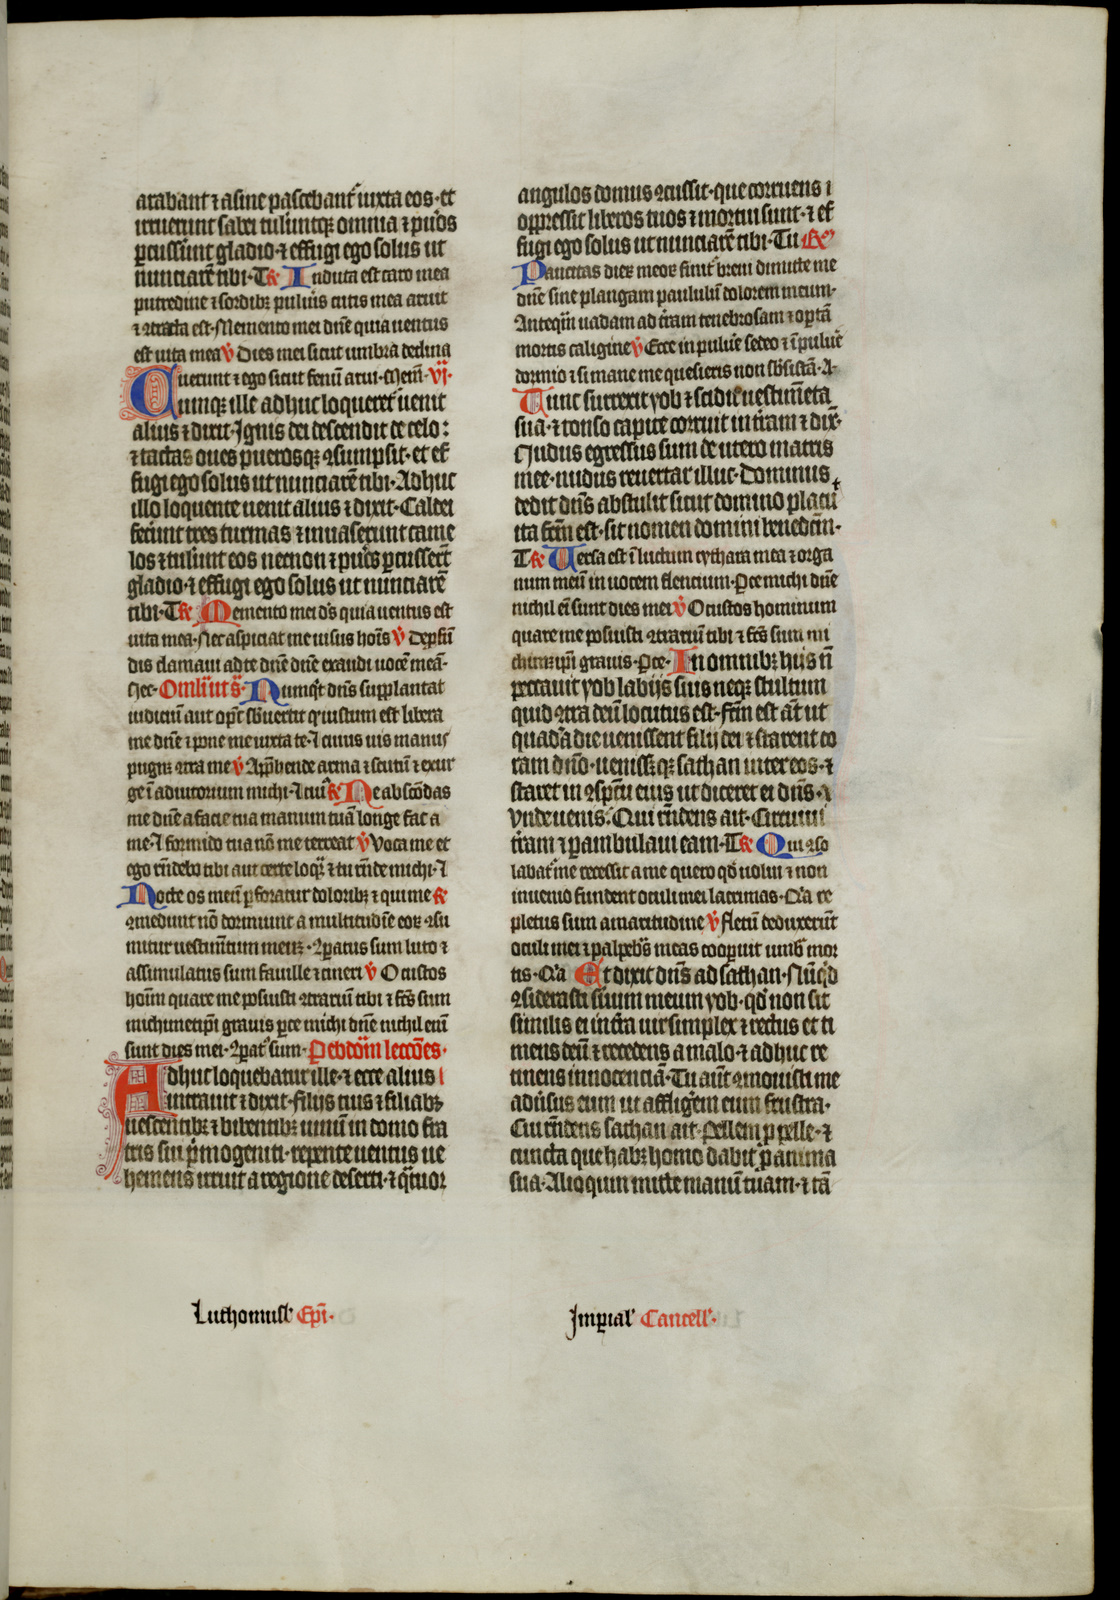 arabant ⁊ asine pascebant᷑ iuxta eos· et
irruerunt sabei tulerūtqꝫ omnia ⁊ pu̾os
ꝑcusserunt gladio· ⁊ effugi ego solus ut
nunciarē tibi· T R Induta est caro mea
putredine ⁊ sordibꝫ pulueris cutis mea aruit
⁊ ꝯtracta est· Memento mei dn̄e quia uentus
est uita mea ℣ Dies mei sicut umbra declina
uerunt ⁊ ego sicut fenū arui· Mem̄· VI·
Cumqꝫ ille adhuc loqueret᷑ uenit
alius ⁊ dixit· Ignis dei descendit de celo:
⁊ tactas oues puerosqꝫ ꝯsumpsit· et ef
fugi ego solus ut nunciarē tibi· Adhuc
illo loquente uenit alius ⁊ dixit· Caldei
fecerunt tres turmas ⁊ inuaserunt came
los ⁊ tulerunt eos necnon ⁊ pu̾os ꝑcusserūt
gladio· ⁊ effugi ego solus ut nunciarē
tibi· T R Memento mei ds̄ quia uentus est
uita mea· Nec aspiciat me uisus hoīs ℣ De ꝓfū
dis clamaui ad te dn̄e dn̄e exaudi uocē meā·
Nec· Numqͥd dn̄s supplantat
iudiciū aut opͥt̄ sb̄uertit qͥ iustum est libera
me dn̄e ⁊ pone me iuxta te· ⁊ cuius uis manus
pugnꝫ ꝯtra me ℣ Apꝑhende arma ⁊ scutū ⁊ exur
ge ī adiutorium michi· ⁊ cuiꝰ R Ne abscōdas
me dn̄e a facie tua manum tuā longe fac a
me· ⁊ formido tua nō me terreat ℣ Voca me et
ego rn̄debo tibi aut certe loqͣr ⁊ tu rn̄de michi· ⁊
Nocte os meū ꝑforatur doloribꝫ ⁊ qui me R
ꝯmedunt nō dormiunt a multitudīe eoꝝ ꝯsu
mitur uestimētum meuꝫ· ꝯꝑatus sum luto ⁊
assimulatus sum fauille ⁊ cineri ℣ O custos
hoīm quare me posuisti ꝯtrariū tibi ⁊ fcs̄ sum
michimetip̄i grauis ꝑce michi dn̄e nichil enī
sunt dies mei· ꝯꝑatꝰ sum· Ꝓ ebdom̄ leccōes·
Adhuc loquebatur ille· ⁊ ecce alius
intrauit ⁊ dixit· filijs tuis ⁊ filiabꝫ
uescentibꝫ ⁊ bibentibꝫ uinū in domo fra
tris sui pͥmogeniti· repente uentus ue
hemens irruit a regione deserti· ⁊ qͣtuor
angulos domus ꝯcussit· que corruens
oppressit liberos tuos ⁊ mortui sunt· ⁊ ef
fugi ego solus ut nunciarē tibi· Tu
Paucitas dieꝝ meoꝝ finit᷑ breui dimitte me
dn̄e sine plangam paululū dolorem meum·
Anteqͣm uadam ad tr̄am tenebrosam ⁊ optā
mortis caligine ℣ Ecce in puluere sedeo ⁊ ī puluere
dormio ⁊ si mane me quesieris non sb̄sistā· A·
Tunc surrexit yob ⁊ scidit uestimēta
sua· ⁊ tonso capite corruit in tr̄am ⁊ dix̄·
Nudus egressus sum de utero matris
mee· nudus reuertar illuc· Dominus
dedit dn̄s abstulit sicut domino placu
ita fcm̄ est· sit nomen domini benedcm̄·
T R Uersa est ī luctum cythara mea ⁊ orga
num meū in uocem flencium· Ꝑce michi dn̄e
nichil eī sunt dies mei ℣ O custos hominum
quare me posuisti ꝯtrariū tibi ⁊ fcs̄ sum mi
chimetip̄i grauis· Ꝑce· In omnibꝫ hijs nō
peccauit yob labijs suis neqꝫ stultum
quid ꝯtra deū locutus est· fcm̄ est āt ut
quadā die uenissent filij dei ⁊ starent co
ram dn̄o· uenissꝫqꝫ sathan inter eos· ⁊
staret in ꝯspcū eius ut diceret ei dn̄s·
Vnde uenis· Qui rn̄dens ait· Circuiui
tr̄am ⁊ ꝑambulaui eam· T R Qui ꝯso
labat᷑ me recessit a me quero qd̄ uolui ⁊ non
inuenio fundent oculi mei lacrimas· Qͥa re
pletus sum amaritudine ℣ fletū deduxerūt
oculi mei ⁊ palpebꝰs meas cooꝑuit umbͣ mor
tis· Qͥa Et dixit dn̄s ad sathan· Nūqͥd
ꝯsiderasti s̄uum meum yob· qd̄ non sit
similis ei in tr̄a uir simplex ⁊ rectus et ti
mens deū ⁊ recedens a malo· ⁊ adhuc re
tinens innocenciā· Tu aūt ꝯmouisti me
adu̾sus eum ut affligerem eum frustra·
Cui rn̄dens sathan ait· Pellem ꝓ pelle· ⁊
cuncta que habꝫ homo dabit ꝓ anima
sua· Alioquin mitte manū tuam· ⁊ tā
Luthomusl᷑ Ep̄i·
Imꝑial᷑ Cancell᷑·